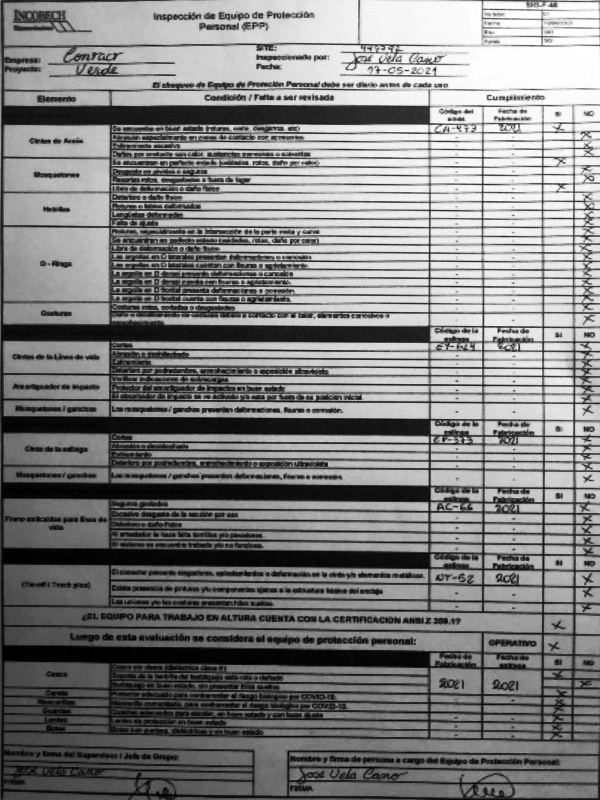 INCOBECH
Inspección de Equipo de Protección
Personal (EPP)
SIG-F-46
Empresa: Conracr
Proyecto: Verde
SITE:
Inspeccionado por: José Vela Cano
Fecha: 17-05-2021
El chequeo de Equipo de Protección Personal debe ser diario antes de cada uso
Elemento Condición / Falta a ser revisada Cumplimiento
Código del arnés Fecha de Fabricación SI NO
Cintas de Arnés
Se encuentra en buen estado (roturas, corte, desgarros, etc) 2021 X
Abrasión especialmente en zonas de contacto con accesorios - - X
Estiramiento excesivo - - X
Daños por contacto con calor, sustancias corrosivas o solventes - - X
Mosquetones
Se encuentran en perfecto estado (soldados, rotos, daño por calor) - - X
Desgaste en pivotes o seguros - - X
Resortes rotos, desgastados o fuera de lugar - - X
Hebillas
Libre de deformación o daño físico - - X
Deterioro o daño físico - - X
Roturas o fallos deformados - - X
Lengüetas deformadas - - X
Falta de ajuste - - X
D - Rings
Roturas, especialmente en la intersección de la parte recta y curva - - X
Se encuentran en perfecto estado (soldados, rotos, daño por calor) - - X
Libre de deformación o daño físico - - X
Las argollas en D laterales presentan deformaciones o corrosión - - X
Las argollas en D laterales cuentan con fisuras o agrietamiento. - - X
La argolla en D dorsal presenta deformaciones o corrosión - - X
La argolla en D dorsal cuenta con fisuras o agrietamiento. - - X
La argolla en D frontal presenta deformaciones o corrosión. - - X
La argolla en D frontal cuenta con fisuras o agrietamiento. - - X
Costuras
Costuras rotas, cortadas o desgastadas - - X
Daño o debilitamiento de costuras debido a contacto con el calor, elementos corrosivos o - - X
Código de la eslinga Fecha de Fabricación SI NO
Cintas de la Línea de vida
Cortes 2021 X
Abrasión o deshilachado - - X
Estiramiento - - X
Deterioro por podredumbre, enmohecimiento o exposición ultravioleta - - X
Amortiguador de impacto
Verificar indicaciones de sobrecargas - - X
Protector del amortiguador de impactos en buen estado - - X
El absorbedor de impacto se ve activado y/o esta por fuera de su posición inicial. - - X
Mosquetones / ganchos Los mosquetones / ganchos presentan deformaciones, fisuras o corrosión. - - X
Código de la eslinga Fecha de Fabricación SI NO
Cinta de la eslinga
Cortes 2021 X
Abrasión o deshilachado - - X
Estiramiento - - X
Deterioro por podredumbre, enmohecimiento o exposición ultravioleta - - X
Mosquetones / ganchos Los mosquetones / ganchos presentan deformaciones, fisuras o corrosión. - - X
Código de la eslinga Fecha de Fabricación SI NO
Freno anticaídas para línea de vida
Seguros gastados AC-66 2021 X
Excesivo desgaste de la sección por uso - - X
Deterioro o daño Físico - - X
Al arrestador le hace falta tornillos y/o pasadores - - X
El sistema se encuentra trabado y/o no funciona. - - X
Código de la eslinga Fecha de Fabricación SI NO
El conector presenta rasgaduras, aplastamientos o deformación en la cinta y/o elementos metálicos. 2021 X
Existe presencia de pintura y/u componentes ajenos a la estructura básica del anclaje - - X
Las uniones y/o las costuras presentan hilos sueltos. - - X
¿EL EQUIPO PARA TRABAJO EN ALTURA CUENTA CON LA CERTIFICACION ANSI Z 359.1? X
Luego de esta evaluación se considera el equipo de protección personal: OPERATIVO X
Fecha de Fabricación Fecha de SI NO
Casco
2021 2021
Careta Protector adecuado para contrarrestar el riesgo biológico por COVID-19. X
Mascarillas Mascarilla comunitaria, para contrarrestar el riesgo biológico por COVID-19. - - X
Guantes Guantes adecuados para escalar, en buen estado y con buen ajuste - - X
Lentes Lentes de protección en buen estado - - X
Botas Botas con puntera, dieléctricas y en buen estado - - X
Nombre y firma del Supervisor / Jefe de Grupo:
José Vela Cano
FIRMA
Nombre y firma de persona a cargo del Equipo de Protección Personal:
José Vela Cano
FIRMA